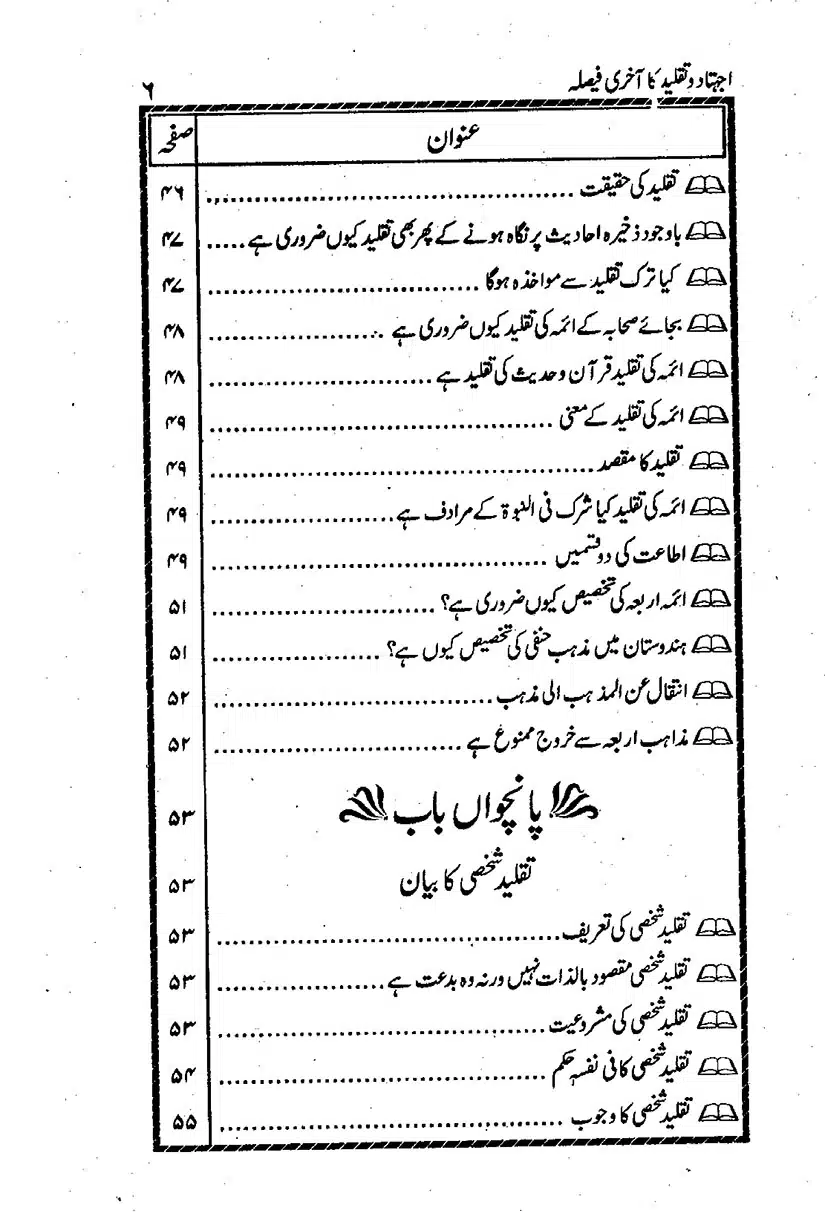 اجتہاد و تقلید کا آخری فیصلہ ۶
عنوان صفحہ
تقلید کی حقیقت ۴۶
باوجود ذخیرہ احادیث پر نگاہ ہونے کے پھر بھی تقلید کیوں ضروری ہے ۴۷
کیا ترک تقلید سے مواخذہ ہوگا ۴۷
بجائے صحابہ کے ائمہ کی تقلید کیوں ضروری ہے ۴۸
ائمہ کی تقلید قرآن و حدیث کی تقلید ہے ۴۸
ائمہ کی تقلید کے معنی ۴۹
تقلید کا مقصد ۴۹
ائمہ کی تقلید کیا شرک فی النبوۃ کے مرادف ہے ۴۹
اطاعت کی دو قسمیں ۴۹
ائمہ اربعہ کی تخصیص کیوں ضروری ہے؟ ۵۱
ہندوستان میں مذہب حنفی کی تخصیص کیوں ہے؟ ۵۱
انتقال عن المذہب الی مذہب ۵۲
مذاہب اربعہ سے خروج ممنوع ہے ۵۲
پانچواں باب ۵۳
تقلید شخصی کا بیان ۵۳
تقلید شخصی کی تعریف ۵۳
تقلید شخصی مقصود بالذات نہیں ورنہ وہ بدعت ہے ۵۳
تقلید شخصی کی مشروعیت ۵۳
تقلید شخصی کا فی نفسہ حکم ۵۴
تقلید شخصی کا وجوب ۵۵